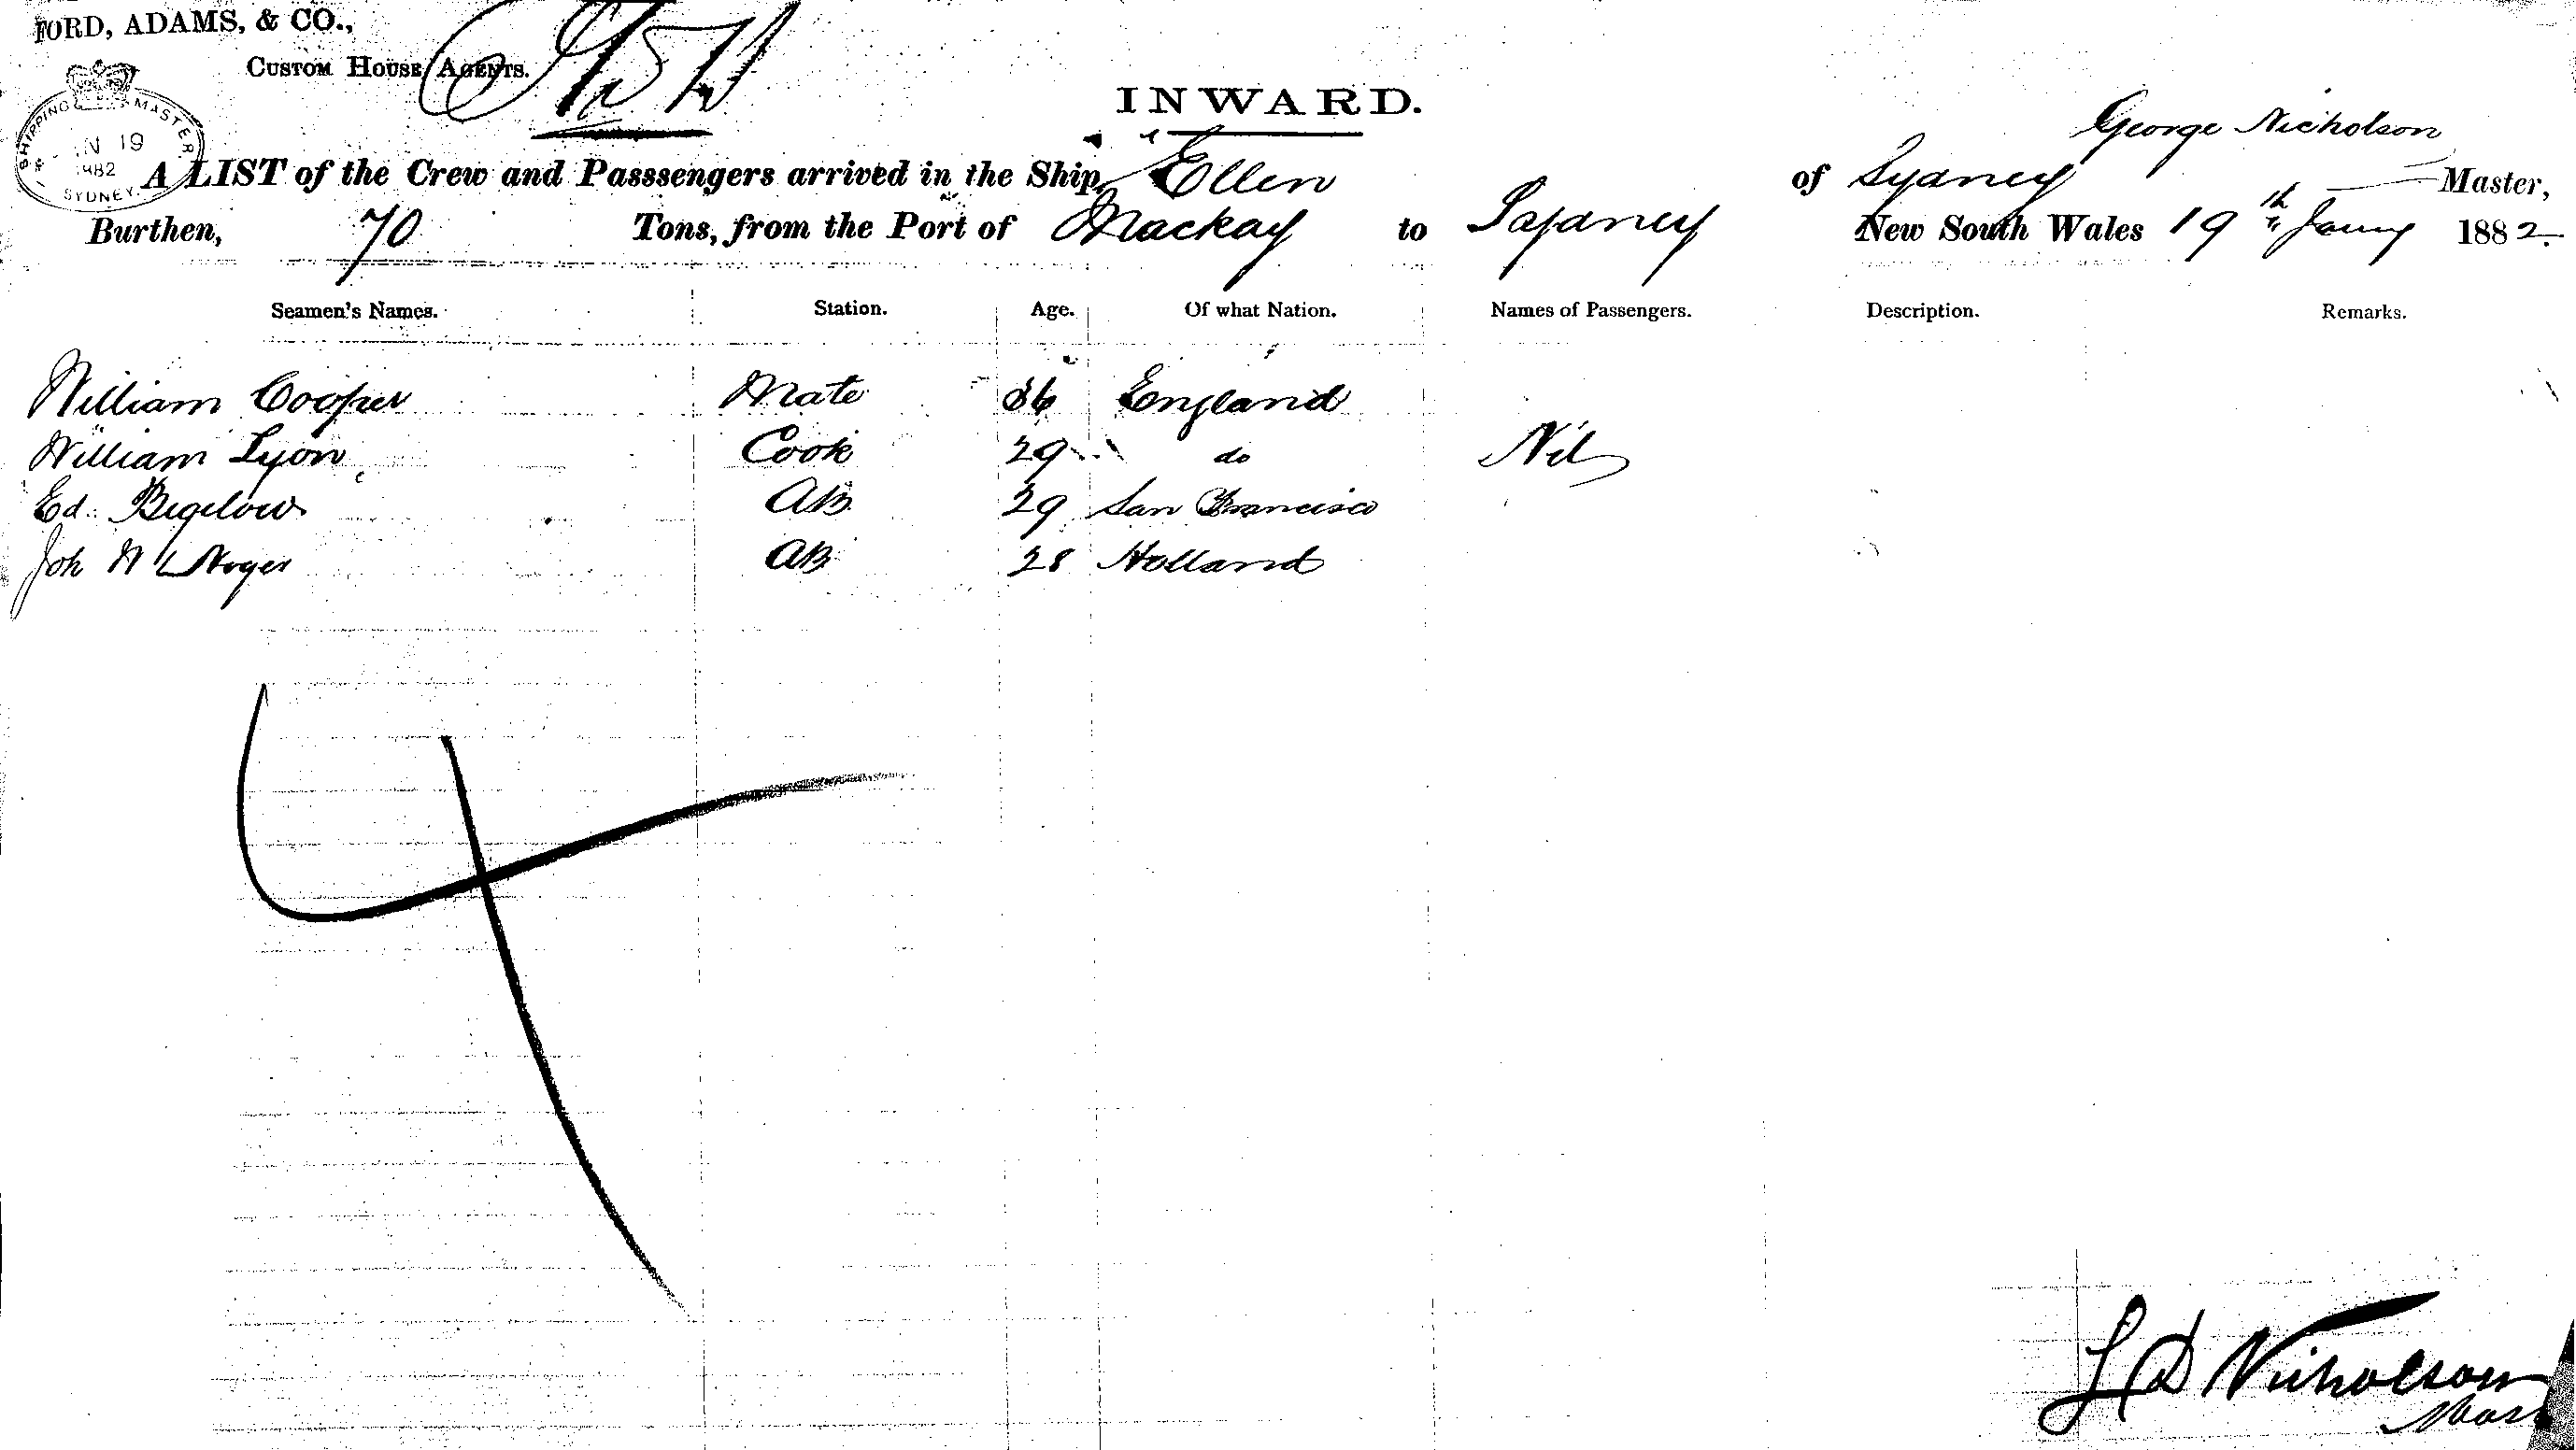 FORD, ADAMS, & CO.,
CUSTOM HOUSE AGENTS.
INWARD.
SHIPPING MASTER
19
1882
SYDNEY
George Nicholson
A LIST of the Crew and Passsengers arrived in the Ship, Ellen of Sydney Master,
Burthen, 70 Tons, from the Port of Mackay to Sydney New South Wales 19th Jany 1882.
Seamen's Names. Station. Age. Of what Nation. Names of Passengers. Description. Remarks.
William Cooper Mate 36 England
William Lyon Cook 29 do Nil
Ed. Bigelow AB 29 San Francisco
Joh AB 28 Holland
Nicholson